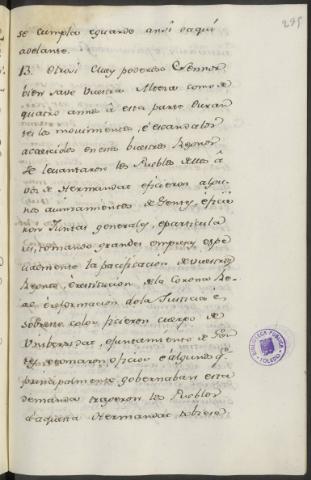 295
se cumpla eguarde ansi daquí
adelante.
13. Otrosi Muy poderoso Sennor
bien save Vuestra Alteza como de
quatro annos á esta parte duran-
te los movimientos, é escandalos
acaecidos en estos vuestros Regnos
se levantaron los Pueblos dellos á
vos de Hermandat eficieron algu-
nos aiuntamientos de Gente, eficie
ron Juntas generales, eparticula
res, tomando grandes empresas espe
cialmente la pacificacion de vuestros
Regnos, érestitucion de la Corona Re-
al, éreformacion dela Justicia é
sobreste color ficieron cuerpo de
Universidat, eayuntamiento de Gen
tes, etomaron oficios é algunos q.e
principalmente gobernaban esta
demanda trageron los Pueblos
daquesta Hermandat sobresi,
BIBLIOTECA PUBLICA
TOLEDO